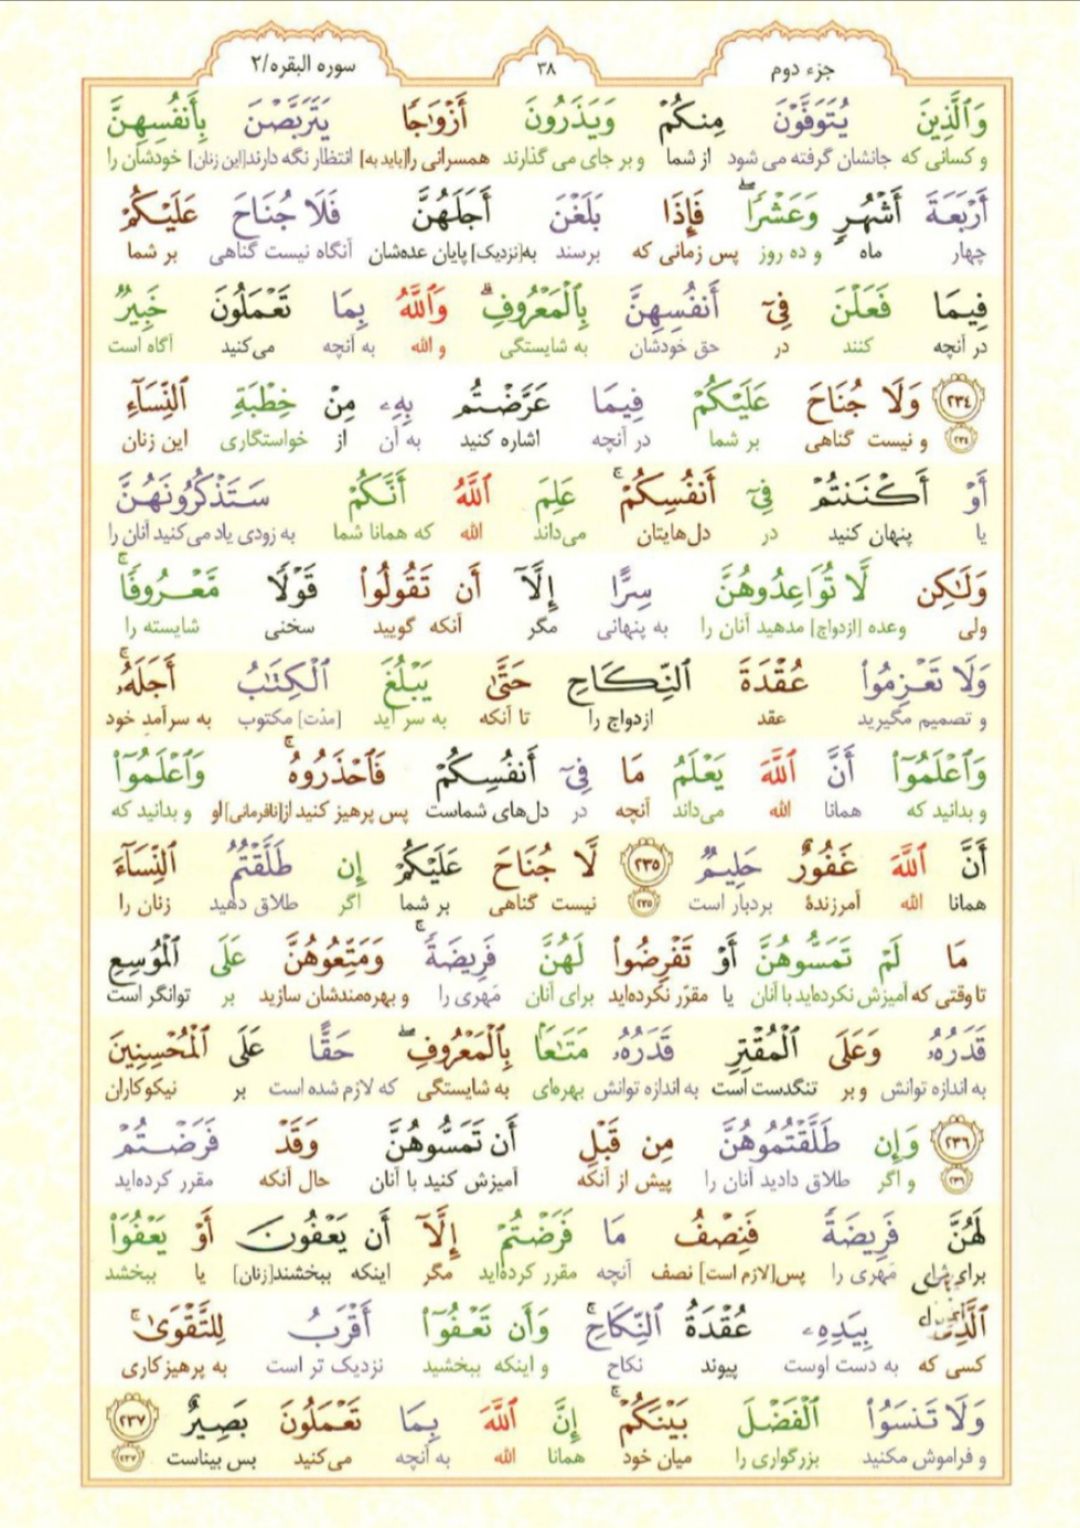 جزء دوم
۳۸
سوره البقره/۲
وَٱلَّذِينَ يُتَوَفَّوۡنَ مِنكُمۡ وَيَذَرُونَ أَزۡوَٰجٗا يَتَرَبَّصۡنَ بِأَنفُسِهِنَّ
و کسانی که جانشان گرفته می شود از شما و بر جای می گذارند همسرانی را[باید به] انتظار نگه دارند[این زنان] خودشان را
أَرۡبَعَةَ أَشۡهُرٖ وَعَشۡرٗاۖ فَإِذَا بَلَغۡنَ أَجَلَهُنَّ فَلَا جُنَاحَ عَلَيۡكُمۡ
چهار ماه و ده روز پس زمانی که برسند به[نزدیک] پایان عده‌شان آنگاه نیست گناهی بر شما
فِيمَا فَعَلۡنَ فِيٓ أَنفُسِهِنَّ بِٱلۡمَعۡرُوفِۗ وَٱللَّهُ بِمَا تَعۡمَلُونَ خَبِيرٞ
در آنچه کنند در حق خودشان به شایستگی و الله به آنچه می‌کنید آگاه است
٢٣٤ وَلَا جُنَاحَ عَلَيۡكُمۡ فِيمَا عَرَّضۡتُم بِهِۦ مِنۡ خِطۡبَةِ ٱلنِّسَآءِ
۲۳۴ و نیست گناهی بر شما در آنچه اشاره کنید به آن از خواستگاری این زنان
أَوۡ أَكۡنَنتُمۡ فِيٓ أَنفُسِكُمۡۚ عَلِمَ ٱللَّهُ أَنَّكُمۡ سَتَذۡكُرُونَهُنَّ
یا پنهان کنید در دل‌هایتان می‌داند الله که همانا شما به زودی یاد می‌کنید آنان را
وَلَٰكِن لَّا تُوَاعِدُوهُنَّ سِرًّا إِلَّآ أَن تَقُولُواْ قَوۡلٗا مَّعۡرُوفٗاۚ
ولی وعده [ازدواج] مدهید آنان را به پنهانی مگر آنکه گویید سخنی شایسته را
وَلَا تَعۡزِمُواْ عُقۡدَةَ ٱلنِّكَاحِ حَتَّىٰ يَبۡلُغَ ٱلۡكِتَٰبُ أَجَلَهُۥۚ
و تصمیم مگیرید عقد ازدواج را تا آنکه به سر آید [مدّت] مکتوب به سرآمد خود
وَٱعۡلَمُوٓاْ أَنَّ ٱللَّهَ يَعۡلَمُ مَا فِيٓ أَنفُسِكُمۡ فَٱحۡذَرُوهُۚ وَٱعۡلَمُوٓاْ
و بدانید که همانا الله می‌داند آنچه در دل‌های شماست پس پرهیز کنید از[نافرمانی] او و بدانید که
أَنَّ ٱللَّهَ غَفُورٌ حَلِيمٞ ٢٣٥ لَّا جُنَاحَ عَلَيۡكُمۡ إِن طَلَّقۡتُمُ ٱلنِّسَآءَ
همانا الله آمرزندهٔ بردبار است ۲۳۵ نیست گناهی بر شما اگر طلاق دهید زنان را
مَا لَمۡ تَمَسُّوهُنَّ أَوۡ تَفۡرِضُواْ لَهُنَّ فَرِيضَةٗۚ وَمَتِّعُوهُنَّ عَلَى ٱلۡمُوسِعِ
تا وقتی که آمیزش نکرده‌اید با آنان یا مقرّر نکرده‌اید برای آنان مَهری را و بهره‌مندشان سازید بر توانگر است
قَدَرُهُۥ وَعَلَى ٱلۡمُقۡتِرِ قَدَرُهُۥ مَتَٰعَۢا بِٱلۡمَعۡرُوفِۖ حَقًّا عَلَى ٱلۡمُحۡسِنِينَ
به اندازه توانش و بر تنگدست است به اندازه توانش بهره‌ای به شایستگی که لازم شده است بر نیکوکاران
٢٣٦ وَإِن طَلَّقۡتُمُوهُنَّ مِن قَبۡلِ أَن تَمَسُّوهُنَّ وَقَدۡ فَرَضۡتُمۡ
۲۳۶ و اگر طلاق دادید آنان را پیش از آنکه آمیزش کنید با آنان حال آنکه مقرر کرده‌اید
لَهُنَّ فَرِيضَةٗ فَنِصۡفُ مَا فَرَضۡتُمۡ إِلَّآ أَن يَعۡفُونَ أَوۡ يَعۡفُوَاْ
برای مَهری را پس[لازم است] نصف آنچه مقرر کرده‌اید مگر اینکه ببخشند[زنان] یا ببخشد
ٱلَّذِي بِيَدِهِۦ عُقۡدَةُ ٱلنِّكَاحِۚ وَأَن تَعۡفُوٓاْ أَقۡرَبُ لِلتَّقۡوَىٰۚ
کسی که به دست اوست پیوند نکاح و اینکه ببخشید نزدیک تر است به پرهیزکاری
وَلَا تَنسَوُاْ ٱلۡفَضۡلَ بَيۡنَكُمۡۚ إِنَّ ٱللَّهَ بِمَا تَعۡمَلُونَ بَصِيرٌ ٢٣٧
و فراموش مکنید بزرگواری را میان خود همانا الله به آنچه می‌کنید بس بیناست ۲۳۷